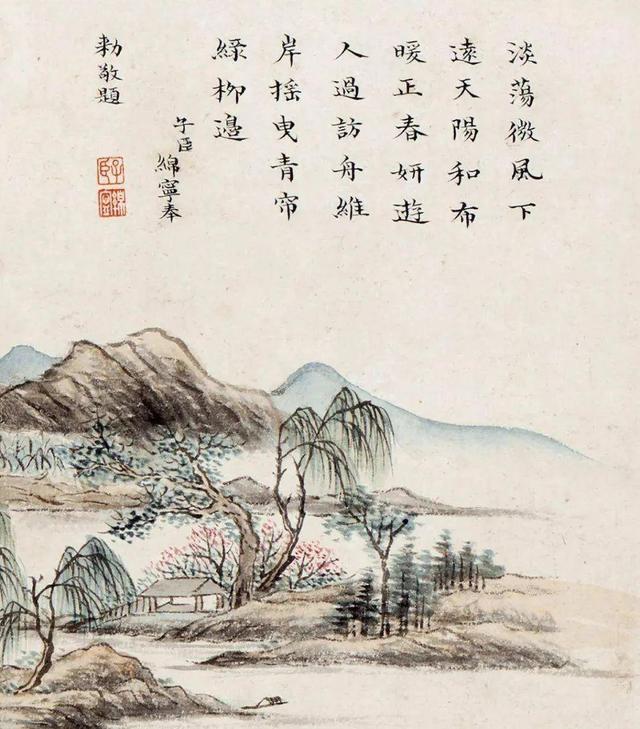 淡蕩微風下
遠天陽和布
暖正春妍遊
人過訪舟維
岸搖曳青帘
綠柳邊
子臣綿寧奉
勅敬題